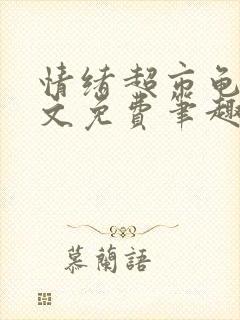 情绪超市龟
文免费笔趣
慕蘭語